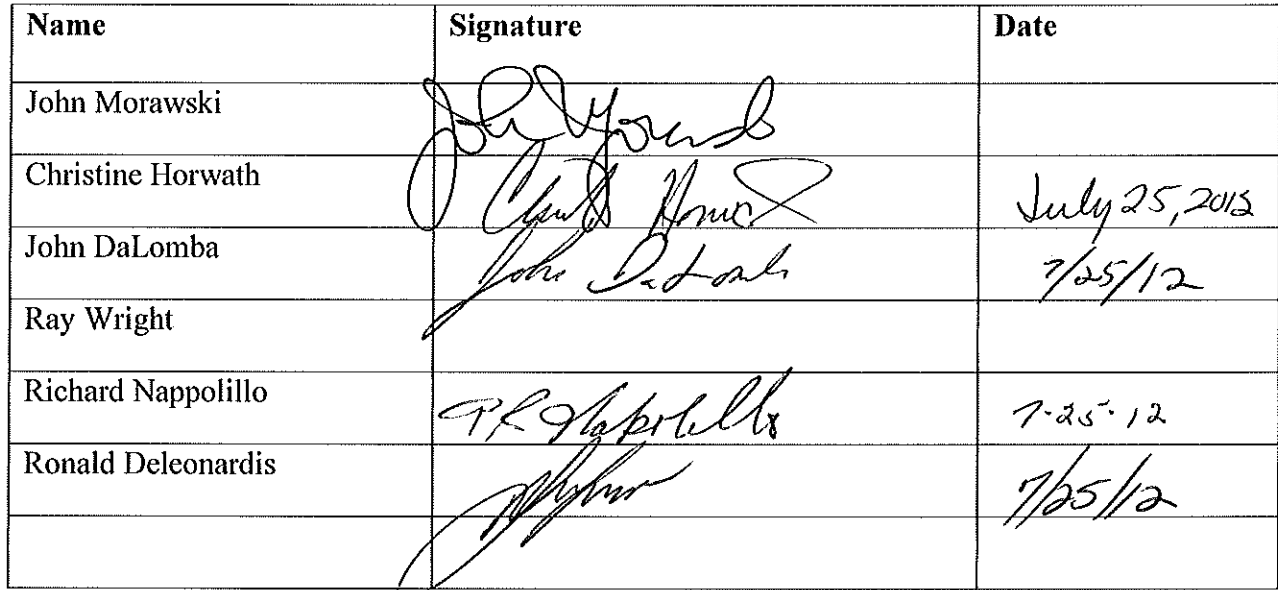 Name Signature Date
John Morawski John Morawski
Christine Horwath July 25, 2012
John DaLomba John DaLomba 7/25/12
Ray Wright
Richard Nappolillo 7-25-12
Ronald Deleonardis 7/25/12